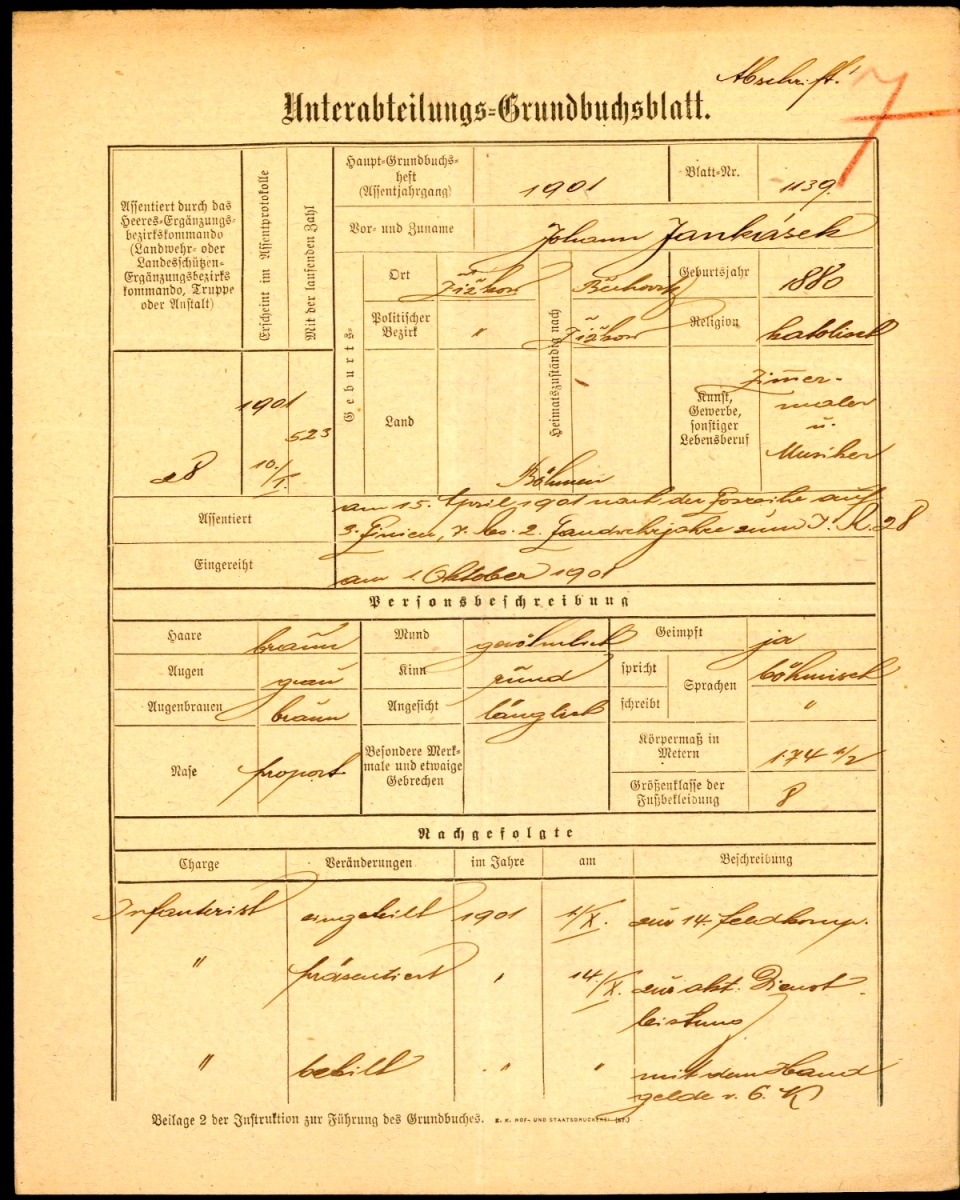 Abschrift!
7
Unterabteilungs-Grundbuchsblatt.
Assentiert durch das
Heeres-Ergänzungs-
bezirkskommando
(Landwehr- oder
Landesschützen-
Ergänzungsbezirks
kommando, Truppe
oder Anstalt)
Erscheint im Assentprotokolle
Mit der laufenden Zahl
Haupt-Grundbuchs-
heft
(Assentjahrgang)
1901
Blatt-Nr.
1139.
Vor- und Zuname
Johann Jankásek
Geburts-
Ort
Žižkov
Heimatszuständig nach
Geburtsjahr
1880
Politischer
Bezirk
"
Žižkov
Religion
katolisch
Land
Böhmen
Kunst,
Gewerbe,
sonstiger
Lebensberuf
Zimmer-
maler
u.
Musiker
28
1901
10./I.
523
Assentiert
am 15. April 1901 nach der Losreihe auf
3. Linien, 7. Res. 2. Landwehrjahre zum I. R. 28
Eingereiht
am 1. Oktober 1901
Personsbeschreibung
Haare
braun
Mund
gewöhnlich
Geimpft
ja
Augen
grau
Kinn
rund
spricht
Sprachen
böhmisch
Augenbrauen
braun
Angesicht
länglich
schreibt
"
Nase
proport
Besondere Merk-
male und etwaige
Gebrechen
Körpermaß in
Metern
174 1/2
Größenklasse der
Fußbekleidung
8
Nachgefolgte
Charge
Veränderungen
im Jahre
am
Beschreibung
Infanterist eingeteilt 1901 1./X. zur 14. Feldkomp.
" präsentiert " 14./X. zur akt. Dienst-
leistung
" betilt " " mit dem Hand
gelde v. 6. K
Beilage 2 der Instruktion zur Führung des Grundbuches. K. K. HOF- UND STAATSDRUCKEREI